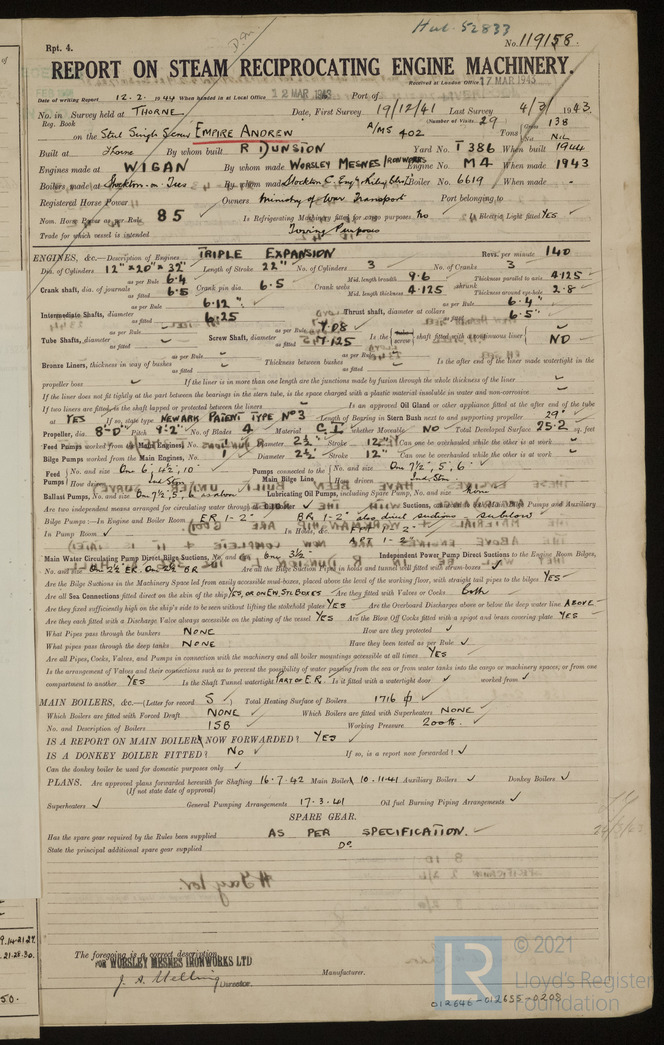 Hul. 52833
Rpt. 4.
No. 119158.
REPORT ON STEAM RECIPROCATING ENGINE MACHINERY.
Received at London Office 17 MAR 1943
Date of writing Report 12.2.1944 When handed in at Local Office 12 MAR 1943 Port of
No. in Survey held at THORNE Date, First Survey 19/12/41 Last Survey 4/3/1943
Reg. Book (Number of Visits 29
on the Steel Single Screw EMPIRE ANDREW A/MS 402 Tons Gross 138 Net NIL
Built at Thorne By whom built R DUNSTON Yard No. T 386 When built 1944
Engines made at WIGAN By whom made WORSLEY MESNES IRONWORKS Engine No. M4 When made 1943
Boilers made at Stockton-on-Tees By whom made Boiler No. 6619 When made
Registered Horse Power Owners Ministry of War Transport Port belonging to
Nom. Horse Power as per Rule 85 Is Refrigerating Machinery fitted for cargo purposes No Is Electric Light fitted YES
Trade for which vessel is intended Towing Purposes
ENGINES, &c.—Description of Engines TRIPLE EXPANSION Revs. per minute 140
Dia. of Cylinders 12" × 20" × 32" Length of Stroke 22" No. of Cylinders 3 No. of Cranks 3
Crank shaft, dia. of journals as per Rule 6.4 as fitted 6.5 Crank pin dia. 6.5 Mid. length breadth 9.6 Mid. length thickness 4.125 shrunk Thickness parallel to axis 4.125 Thickness around eye-hole 2.8
Intermediate Shafts, diameter as per Rule 6.12" as fitted 6.25 Thrust shaft, diameter at collars as per Rule 6.4" as fitted 6.5"
Tube Shafts, diameter as per Rule as fitted Screw Shaft, diameter as per Rule 7.08 as fitted 7.125 Is the screw shaft fitted with a continuous liner NO
Bronze Liners, thickness in way of bushes as per Rule as fitted Thickness between bushes as per Rule as fitted Is the after end of the liner made watertight in the
propeller boss If the liner is in more than one length are the junctions made by fusion through the whole thickness of the liner
If the liner does not fit tightly at the part between the bearings in the stern tube, is the space charged with a plastic material insoluble in water and non-corrosive
If two liners are fitted, is the shaft lapped or protected between the liners Is an approved Oil Gland or other appliance fitted at the after end of the tube
YES If so, state type NEWARK PATENT TYPE No 3 Length of Bearing in Stern Bush next to and supporting propeller 29"
Propeller, dia. 8-0" Pitch 9'-2" No. of Blades 4 Material C.I. whether Moveable NO Total Developed Surface 25.2 sq. feet
Feed Pumps worked from Main Engines, No. 1 Diameter 2½" Stroke 12" Can one be overhauled while the other is at work
Bilge Pumps worked from the Main Engines, No. 1 Diameter 2½" Stroke 12" Can one be overhauled while the other is at work
Feed Pumps No. and size One 6", 4½", 10" How driven Ind. Stm Pumps connected to the Main Bilge Line No. and size One 7½", 5", 6" How driven Ind. Stm
Ballast Pumps, No. and size One 7½", 5", 6" as above Lubricating Oil Pumps, including Spare Pump, No. and size None
Bilge Pumps :—In Engine and Boiler Room ER 1-2" BR 1-2" also direct suctions as below
In Pump Room In Holds, &c. FPT 1-2" APT 1-2"
Main Water Circulating Pump Direct Bilge Suctions, No. and size One 3½" Independent Power Pump Direct Suctions to the Engine Room Bilges,
No. and size One 2½" ER. One 2½" BR Are all the Bilge Suction Pipes in holds and tunnel well fitted with strum-boxes
Are the Bilge Suctions in the Machinery Space led from easily accessible mud-boxes, placed above the level of the working floor, with straight tail pipes to the bilges YES
Are all Sea Connections fitted direct on the skin of the ship YES, OR ON EW STL BOXES Are they fitted with Valves or Cocks both
Are they fixed sufficiently high on the ship's side to be seen without lifting the stokehold plates YES Are the Overboard Discharges above or below the deep water line ABOVE
Are they each fitted with a Discharge Valve always accessible on the plating of the vessel YES Are the Blow Off Cocks fitted with a spigot and brass covering plate YES
What Pipes pass through the bunkers NONE How are they protected
What pipes pass through the deep tanks NONE Have they been tested as per Rule
Are all Pipes, Cocks, Valves, and Pumps in connection with the machinery and all boiler mountings accessible at all times YES
Is the arrangement of Valves and their connections such as to prevent the possibility of water passing from the sea or from water tanks into the cargo or machinery spaces, or from one
compartment to another YES Is the Shaft Tunnel watertight PART OF E.R. Is it fitted with a watertight door worked from
MAIN BOILERS, &c.—(Letter for record S) Total Heating Surface of Boilers 1716
Which Boilers are fitted with Forced Draft NONE Which Boilers are fitted with Superheaters NONE
No. and Description of Boilers 1SB Working Pressure 200 lb.
IS A REPORT ON MAIN BOILERS NOW FORWARDED? YES
IS A DONKEY BOILER FITTED? NO If so, is a report now forwarded?
Can the donkey boiler be used for domestic purposes only
PLANS. Are approved plans forwarded herewith for Shafting 16.7.42 Main Boilers 10.11.41 Auxiliary Boilers Donkey Boilers
(If not state date of approval)
Superheaters General Pumping Arrangements 17.3.41 Oil fuel Burning Piping Arrangements
SPARE GEAR.
Has the spare gear required by the Rules been supplied AS PER SPECIFICATION.
State the principal additional spare gear supplied Do
The foregoing is a correct description
FOR WORSLEY MESNES IRONWORKS LTD
Director. Manufacturer.
012646-012655-0208
LR
© 2021
Lloyd's Register
Foundation